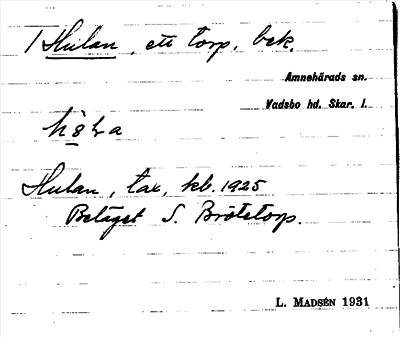 T Hulan, ett torp, bek.
Amnehärads sn.
Vadsbo hd. Skar. l.
Hulan, tax, kb. 1925
Beläget S. Brötetorp.
L. MADSÉN 1931